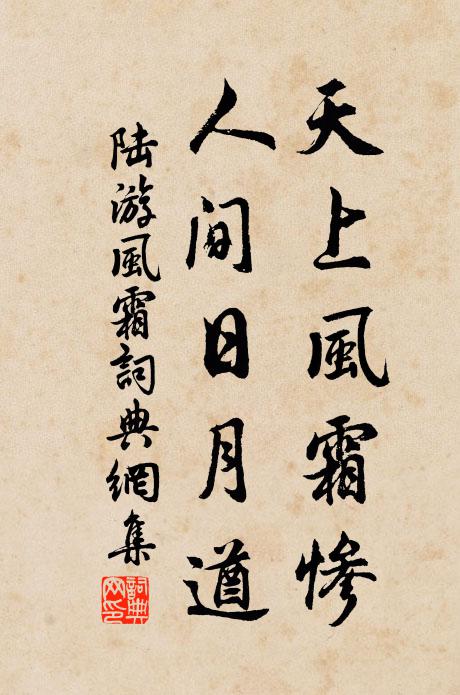 天上風霜慘
人間日月遒
陸游風霜詞典網集
詞典
网印